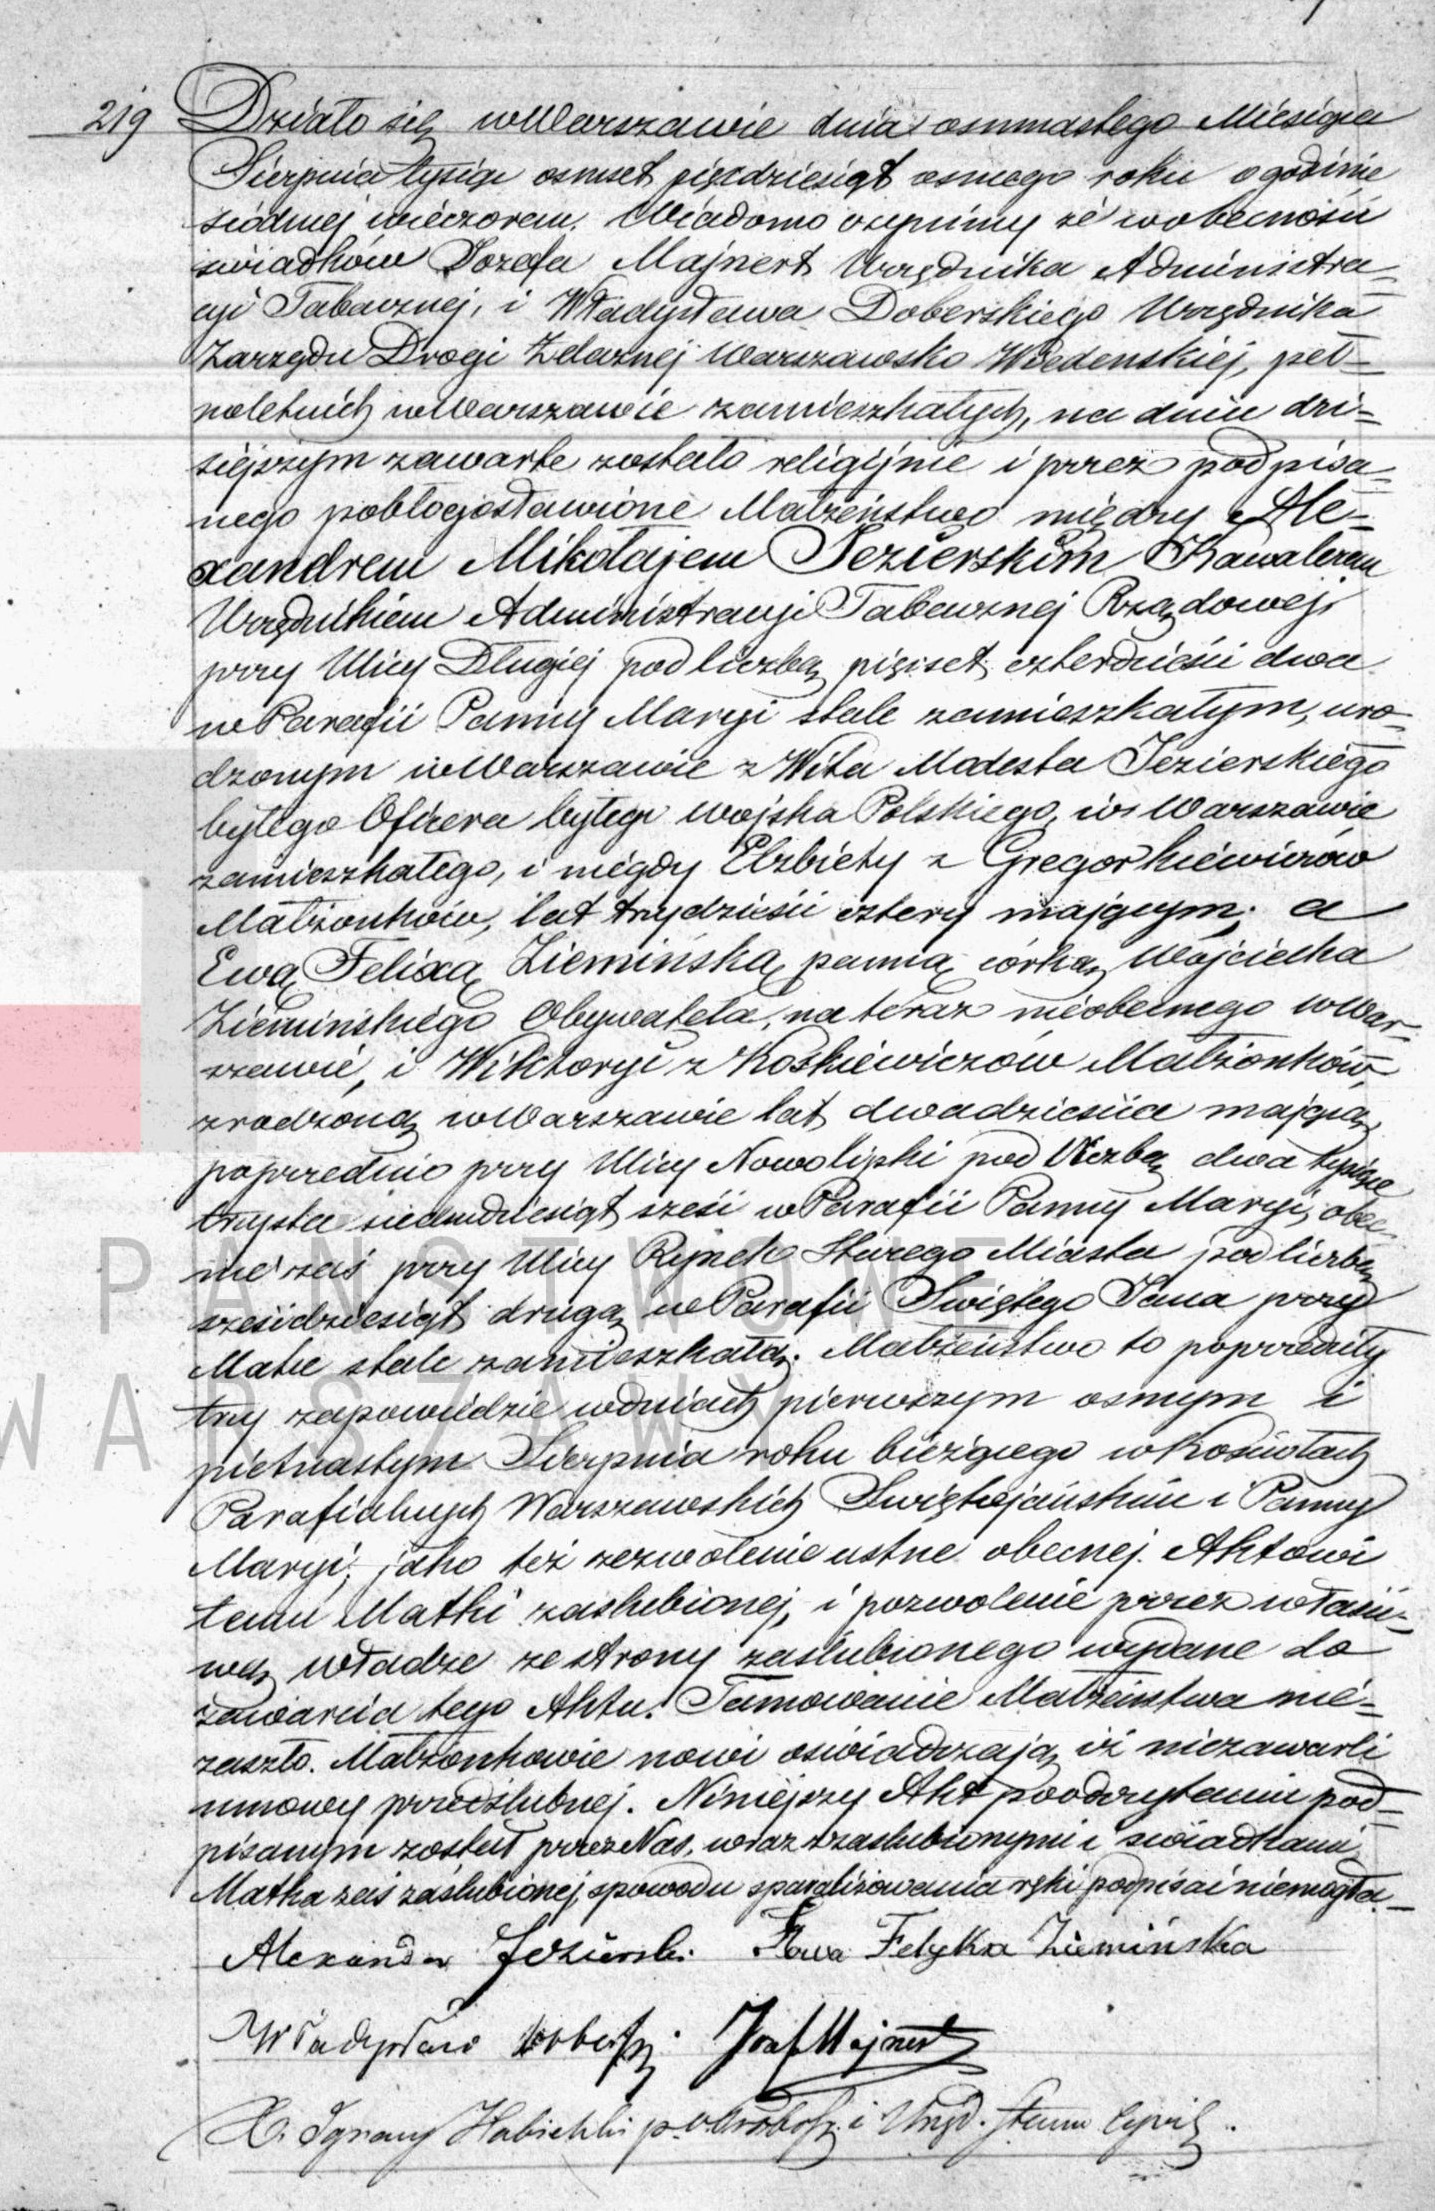 219 Działo się w Warszawie dnia osmnastego Miesiąca
Sierpnia tysiąc osmset pięćdziesiąt osmego roku o godzinie
siódmej wieczorem. Wiadomo czynimy że w obecności
świadków Józefa Majnert Urzędnika Administra=
cyi Tabacznej, i Władysława Doberskiego Urzędnika
Zarządu Drogi Żelaznej Warszawsko Wiedenskiej, peł=
noletnich w Warszawie zamieszkałych, na dniu dzi=
siejszym zawarte zostało religijnie i przez podpisa=
nego pobłogosławione Małżeństwo między Ale=
xandrem Mikołajem Jezierskim Kawalerem
Urzędnikiem Administracyi Tabacznej Rządowej,
przy Ulicy Długiej pod liczbą pięćset czterdzieści dwa
w Parafii Panny Maryi stale zamieszkałym, uro=
dzonym w Warszawie z Wita Modesta Jezierskiego
byłego Oficera byłego wojska Polskiego, w Warszawie
zamieszkałego, i niegdy Elżbiety z Gregorkiewiczów
Małżonków, lat trzydzieści cztery mającym; a
Ewą Felixą Ziemińską panną córką Wojciecha
Ziemińskiego Obywatela, na teraz nieobecnego w War=
szawie, i Wiktoryi z Kośkiewiczów Małżonków,
zrodzoną w Warszawie lat dwadzieścia mającą,
poprzednio przy Ulicy Nowolipki pod liczbą dwa tysiące
trzysta siedmdziesiąt sześć w Parafii Panny Maryi, obec=
nie zaś przy Ulicy Rynek Starego Miasta pod liczbą
sześćdziesiąt drugą w Parafii Świętego Jana przy
Matce stale zamieszkałą. Małżeństwo to poprzedziły
trzy zapowiedzie w dniach pierwszym osmym i
piętnastym Sierpnia roku bieżącego w Kościołach
Parafialnych Warszawskich Świętojańskim i Panny
Maryi, jako też zezwolenie ustne obecnej Aktowi
temu Matki zaślubionej, i pozwolenie przez właści=
wą władze ze strony zaślubionego wydane do
zawarcia tego Aktu. Tamowanie Małżeństwa nie=
zaszło. Małżonkowie nowi oświadczają iż niezawarli
umowy przedślubnej. Niniejszy Akt po odczytaniu pod=
pisanym został przez Nas, wraz z zaślubionymi i świadkami,
Matka zaś zaślubionej, z powodu sparaliżowania ręki podpisać niemogła.
Alexander Jezierski. Ewa Felyksa Ziemińska
Władysław Doberski. Józef Majnert
X. Ignacy Habichtki p.o. Proboszcz i Urzęd. Stanu Cywil.
PAŃSTWOWE
WARSZAWY